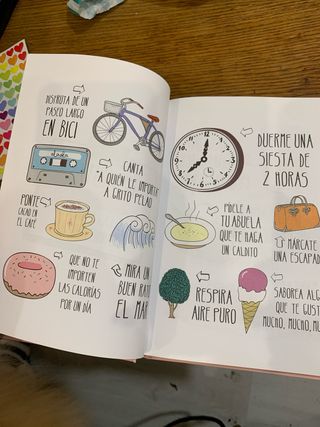 DISFRUTA DE UN
PASEO LARGO
EN BICI
CANTA
A QUIÉN LE IMPORTE
A GRITO PELAO
PONTE
CACAO EN
EL CAFÉ
QUE NO TE
IMPORTEN
LAS CALORÍAS
POR UN DÍA
MIRA UN
BUEN RATO
EL MAR
DUERME UNA
SIESTA DE
2 HORAS
PÍDELE A
TU ABUELA
QUE TE HAGA
UN CALDITO
MÁRCATE
UNA ESCAPAD
RESPIRA
AIRE PURO
SABOREA ALG
QUE TE GUST
MUCHO, MUCHO, MU